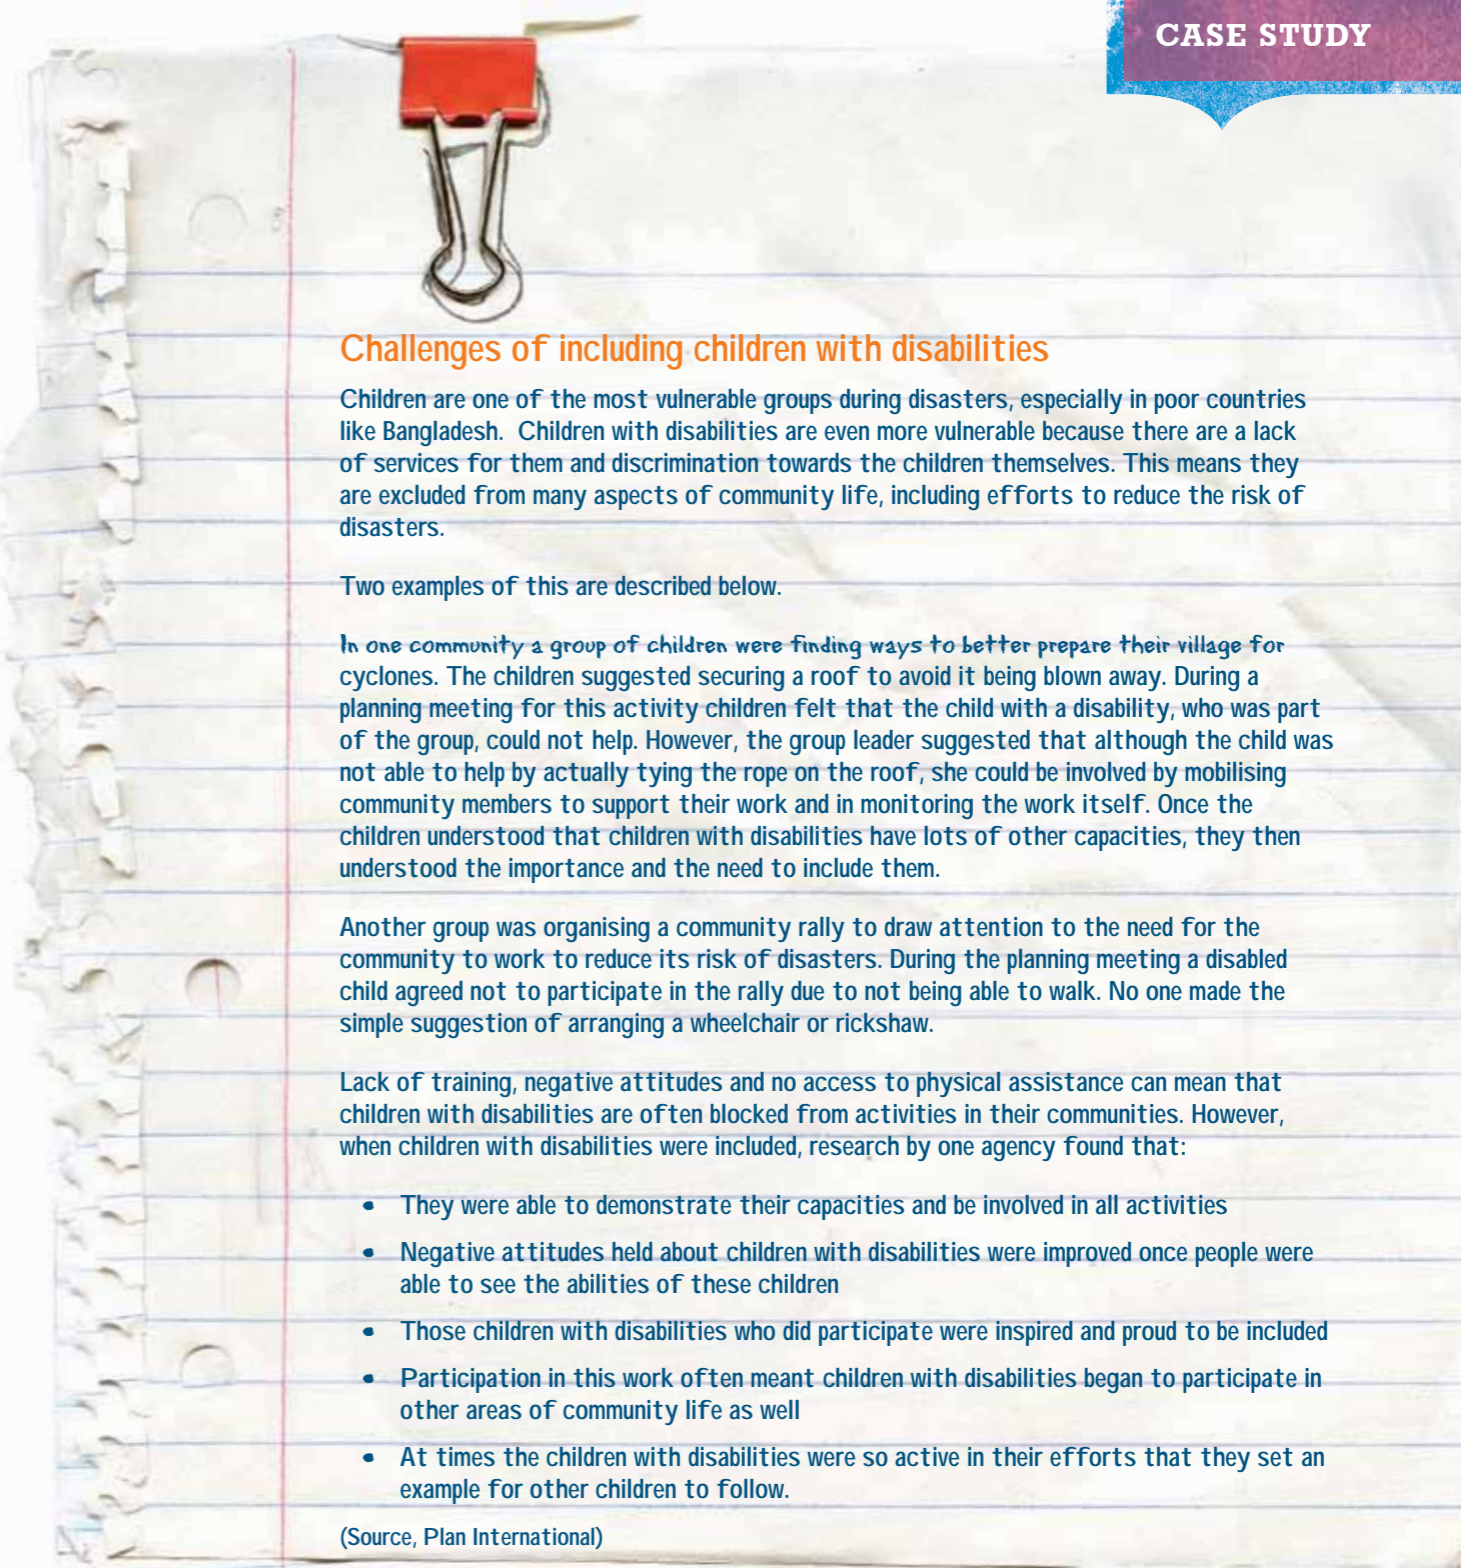 CASE STUDY
Challenges of including children with disabilities
Children are one of the most vulnerable groups during disasters, especially in poor countries
like Bangladesh.  Children with disabilities are even more vulnerable because there are a lack
of services for them and discrimination towards the children themselves. This means they
are excluded from many aspects of community life, including efforts to reduce the risk of
disasters.
Two examples of this are described below.
In one community a group of children were finding ways to better prepare their village for
cyclones. The children suggested securing a roof to avoid it being blown away. During a
planning meeting for this activity children felt that the child with a disability, who was part
of the group, could not help. However, the group leader suggested that although the child was
not able to help by actually tying the rope on the roof, she could be involved by mobilising
community members to support their work and in monitoring the work itself. Once the
children understood that children with disabilities have lots of other capacities, they then
understood the importance and the need to include them.
Another group was organising a community rally to draw attention to the need for the
community to work to reduce its risk of disasters. During the planning meeting a disabled
child agreed not to participate in the rally due to not being able to walk. No one made the
simple suggestion of arranging a wheelchair or rickshaw.
Lack of training, negative attitudes and no access to physical assistance can mean that
children with disabilities are often blocked from activities in their communities. However,
when children with disabilities were included, research by one agency found that:
• They were able to demonstrate their capacities and be involved in all activities
• Negative attitudes held about children with disabilities were improved once people were
able to see the abilities of these children
• Those children with disabilities who did participate were inspired and proud to be included
• Participation in this work often meant children with disabilities began to participate in
other areas of community life as well
• At times the children with disabilities were so active in their efforts that they set an
example for other children to follow.
(Source, Plan International)